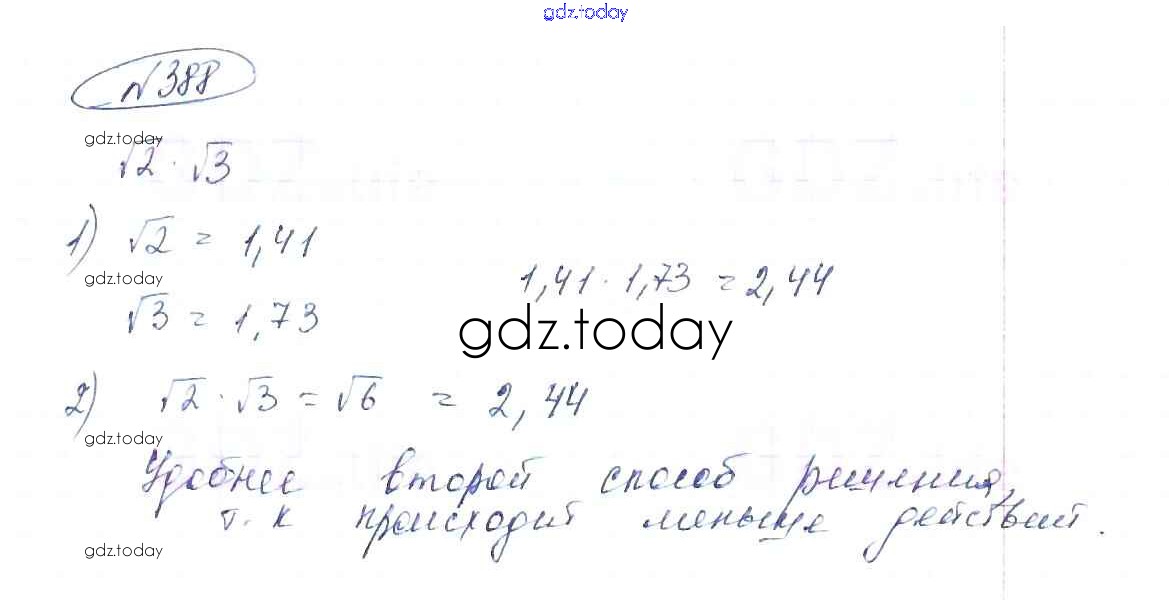 gdz.today
№388
gdz.today
√2 · √3
1) √2 = 1,41
gdz.today
1,41 · 1,73 = 2,44
√3 = 1,73
gdz.today
2) √2 · √3 = √6 = 2,44
gdz.today
Удобнее второй способ решения,
т.к происходит меньше действий.
gdz.today